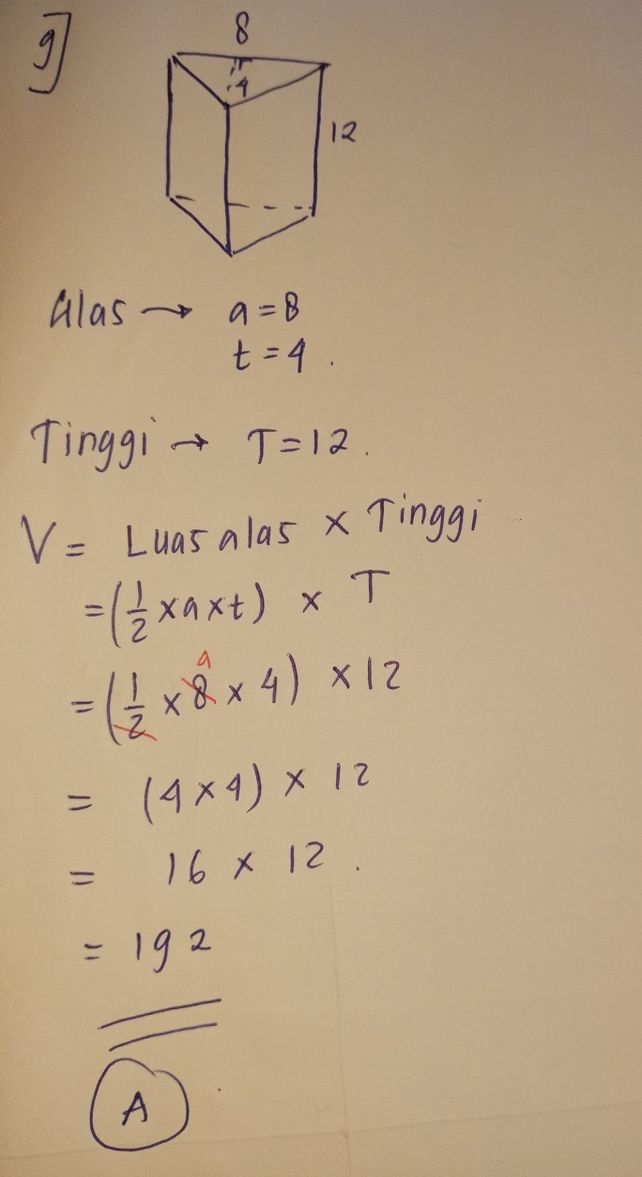 9]
8
4
12
Alas → a = 8
t = 4 .
Tinggi → T = 12 .
V = Luas alas × Tinggi
= (1/2 × a × t) × T
4
= (1/2 × 8 × 4) × 12
= (4 × 4) × 12
= 16 × 12 .
= 192
A